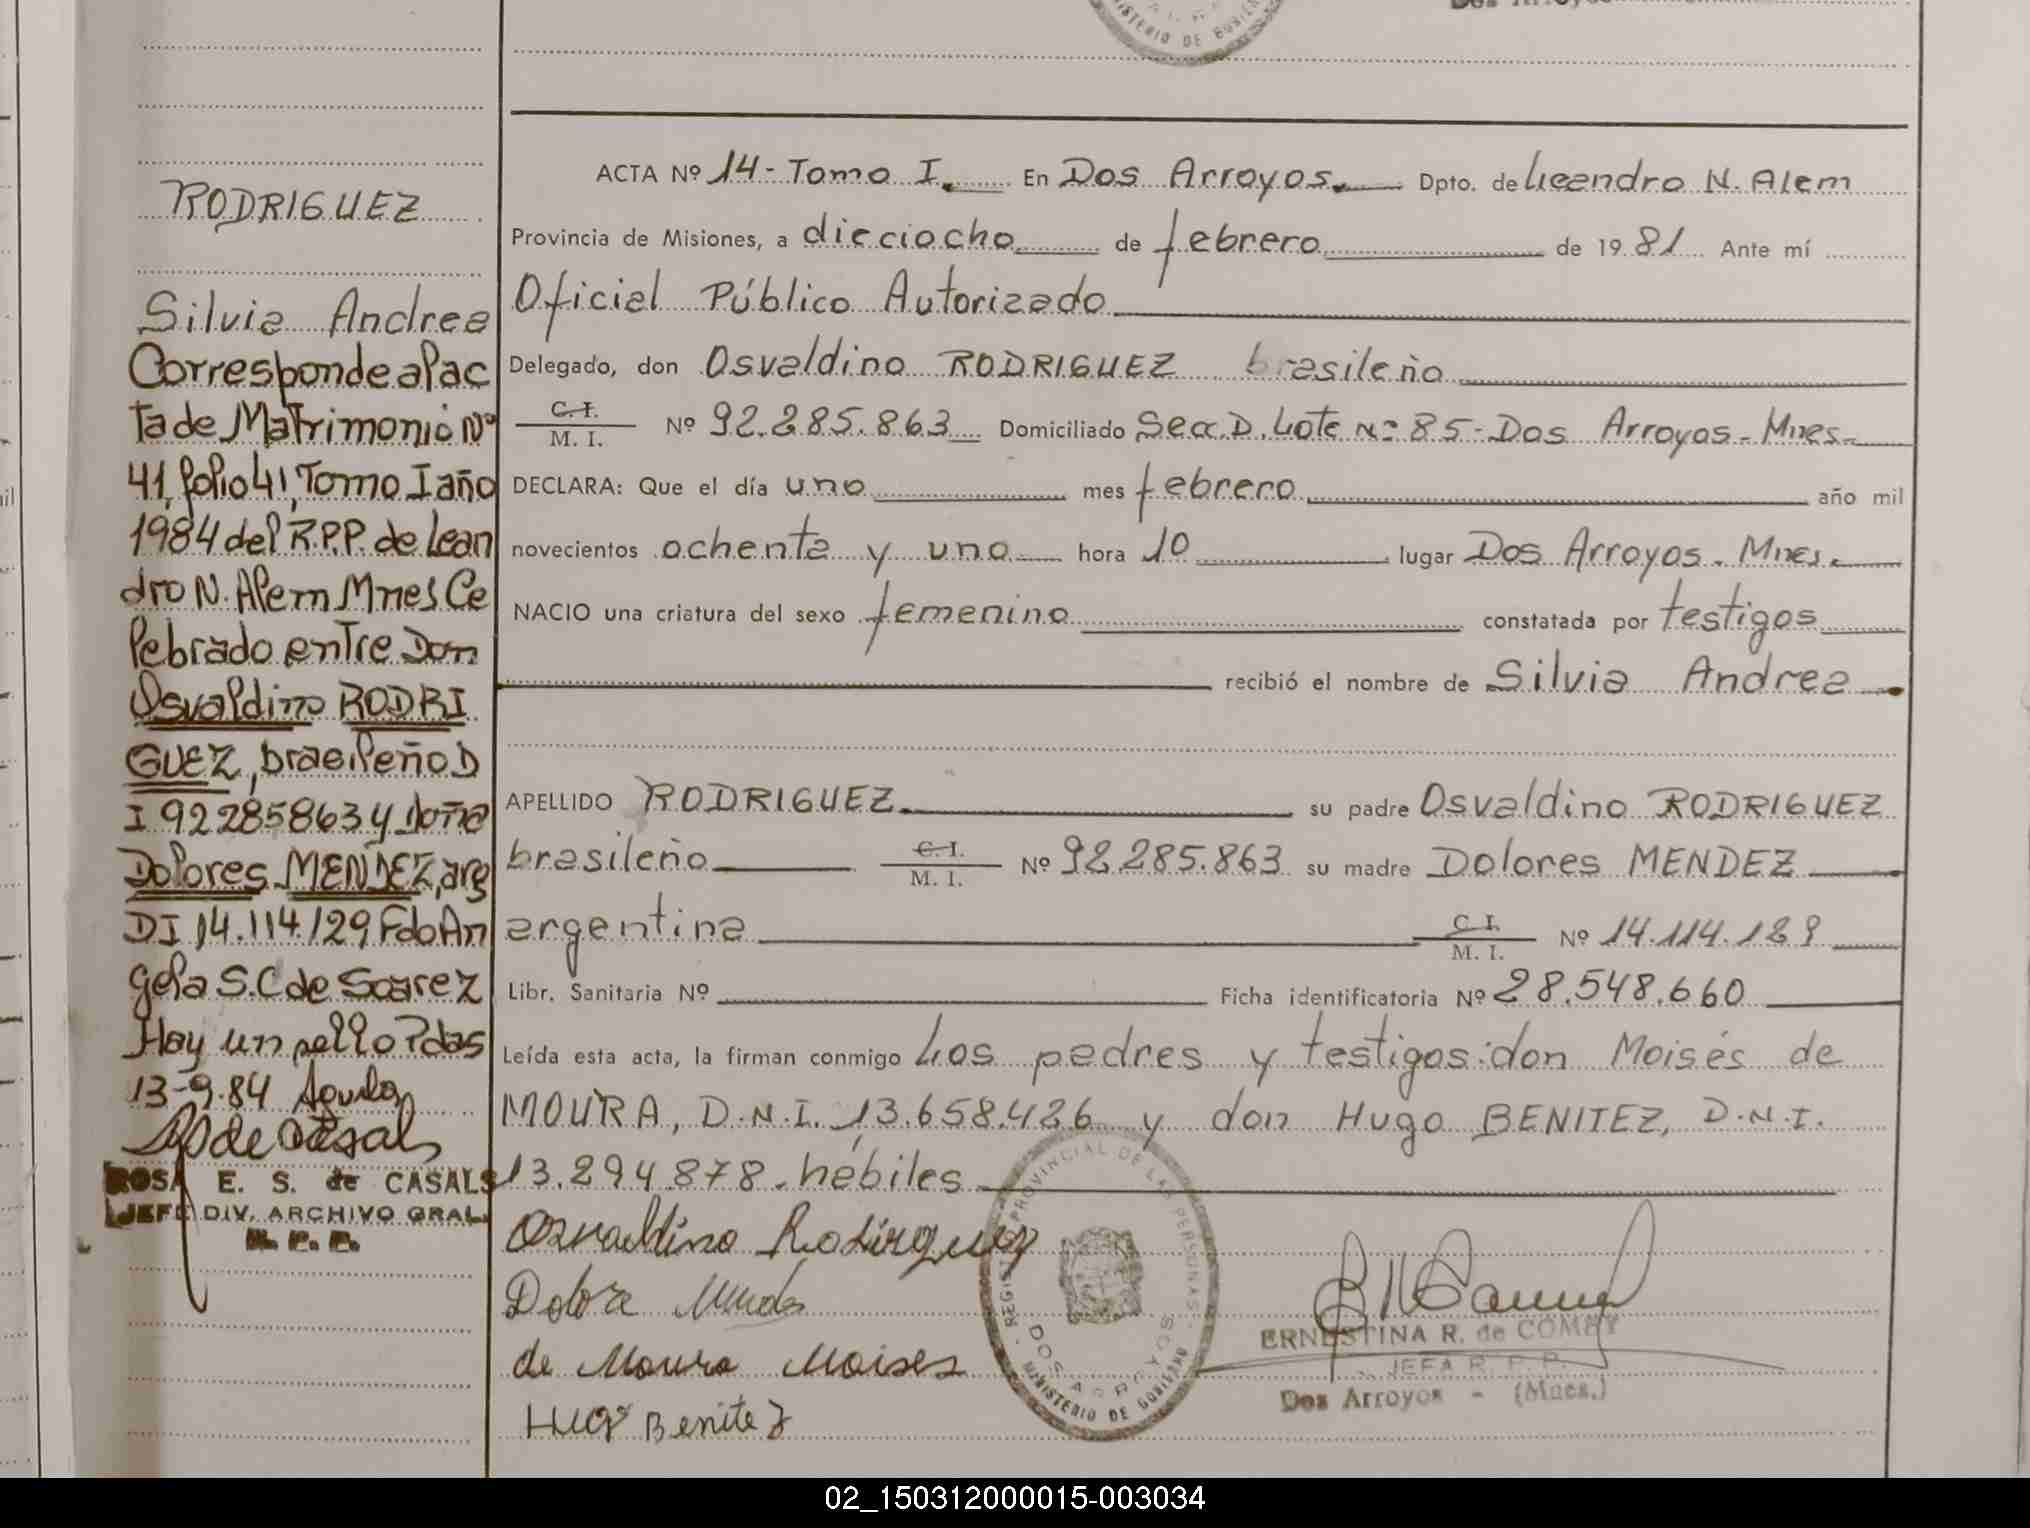 MINISTERIO DE GOBIERNO
RODRIGUEZ
Silvia Andrea
Corresponde al ac
ta de Matrimonio Nº
41, folio 41, Tomo I año
1984 del R.P.P. de Lean
dro N. Alem Mnes Ce
lebrado entre Don
Osvaldino RODRI
GUEZ, brasileño D
I 92285863 y doña
Dolores MENDEZ, arg
DI 14.114.129 Fdo An
gela S.C de Soarez
Hay un sello Pdas
13-9-84
ROSA E. S. de CASALS
JEFE DIV. ARCHIVO GRAL.
R. P. P.
ACTA Nº 14 - Tomo I. En Dos Arroyos. Dpto. de Leandro N. Alem
Provincia de Misiones, a dieciocho de febrero de 1981 Ante mí
Oficial Público Autorizado
Delegado, don Osvaldino RODRIGUEZ brasileño
C. I.
M. I. Nº 92.285.863 Domiciliado Secc. D. Lote Nº 85 - Dos Arroyos - Mnes.
DECLARA: Que el día uno mes febrero año mil
novecientos ochenta y uno hora 10 lugar Dos Arroyos. Mnes.
NACIO una criatura del sexo femenino constatada por testigos
recibió el nombre de Silvia Andrea
APELLIDO RODRIGUEZ. su padre Osvaldino RODRIGUEZ
brasileño C. I.
M. I. Nº 92.285.863 su madre Dolores MENDEZ
argentina C. I.
M. I. Nº 14.114.129
Libr. Sanitaria Nº Ficha identificatoria Nº 28.548.660
Leída esta acta, la firman conmigo Los padres y testigos: don Moisés de
MOURA, D.N.I. 13.658.426 y don Hugo BENITEZ, D.N.I.
13.294.878. hábiles
Osvaldino Rodriguez
Dolore
de Moura Moises
Hugo Benitez
REGISTRO PROVINCIAL DE LAS PERSONAS
DOS ARROYOS
MINISTERIO DE GOBIERNO
ERNESTINA R. de COMBY
JEFA R. P. P.
Dos Arroyos - (Mnes.)
02_150312000015-003034